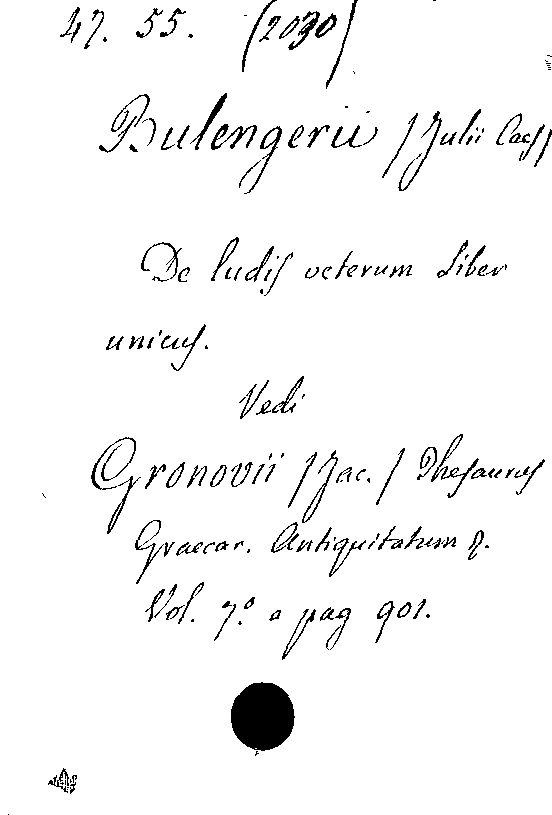 47. 55. (2030)
Bulengerii /Julii Caes/
De ludis veterum Liber
unicus.
Vedi
Gronovii /Jac./ Thesaurus
Graecar. Antiquitatum
Vol. 7.º a pag 901.